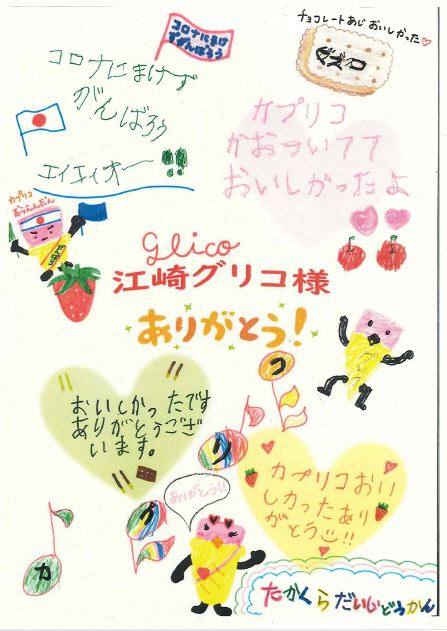 コロナにまけ
ずがんばろう
チョコレートあじおいしかった♡
ビスコ
コロナにまけず
がんばろう
エイエイオー!!
カプリコ
かおヲいフ7
おいしかったよ
カプリコ
おうえんだん
Glico
江崎グリコ様
ありがとう!
おいしかったです
ありがとうござ
います。
カプリコ
ありがとう!!
カプリコおい
しかったあり
がとう☺!!
たかくらだいじどうかん